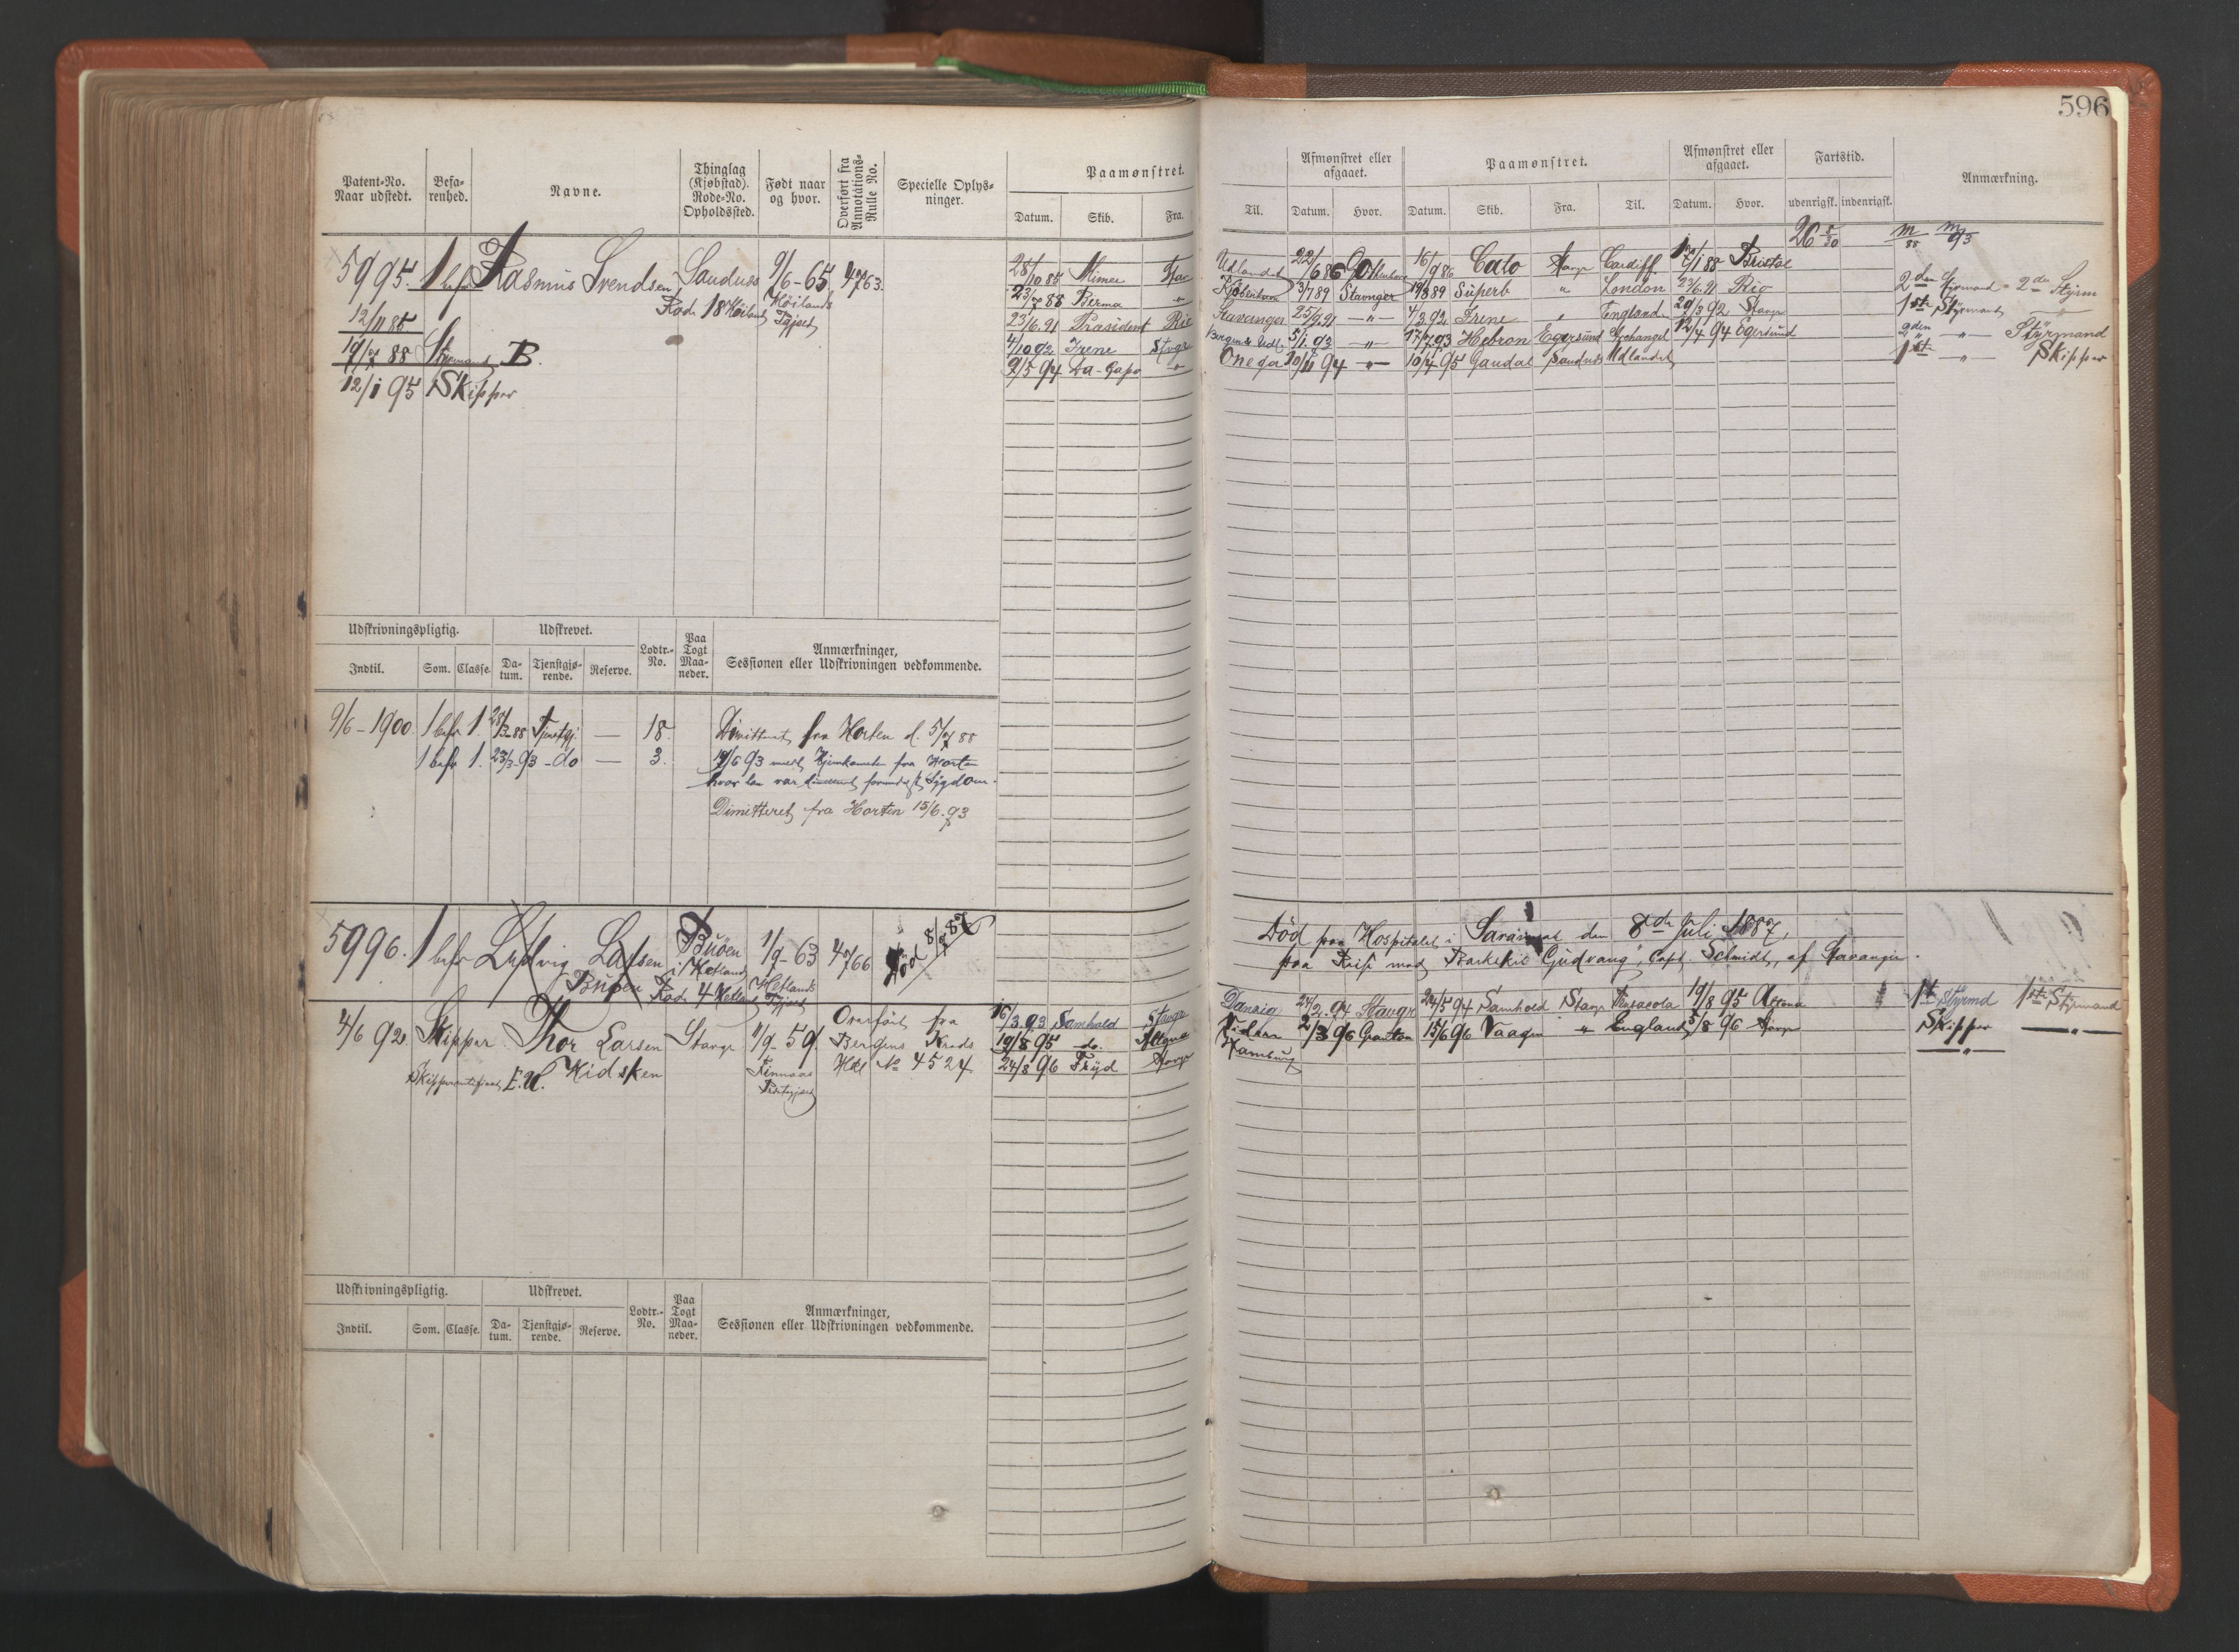 596
Patent-No. Naar udstedt.
Befarenhed.
Navne.
Thinglag (Kjøbstad). Rode-No. Opholdssted.
Født naar og hvor.
Overført fra Annotations-Rulle No.
Specielle Oplysninger.
Paamønstret.
Datum. Skib. Fra.
Til.
Afmønstret eller afgaaet.
Datum. Hvor.
Paamønstret.
Datum. Skib. Fra. Til.
Afmønstret eller afgaaet.
Datum. Hvor.
Fartstid.
udenrigsk. indenrigsk.
Anmærkning.
5995. 1 bef Rasmus Svendsen Sandnes 9/6-65 4763.
Rode 18 Høiland Høilands Prgjæld
12/11 85
19/7 88 Styrmand B.
12/1 95 Skipper
28/10 85 Mimer
23/7 88 Birma "
23/6. 91 Præsident Rio
4/10 92 Irene Stvgr
2/5 94 Da-Capo "
Udlandet 22/6 86 16/9 86 Cato Stavgr Cardiff 88 Bristol
Kjøbenhavn 3/7 89 Stavanger 89 Superb " London 23/6. 91 Rio
Stavanger 25/9. 91 —"— 4/3. 92 Irene " England 29/3 92 Stavgr
Bergen & Udl. 5/1. 93 —"— 17/7. 93 Hebron Egersund Archangel 12/4 94 Egersund
Onega 20/11 94 "— 10/4 95 Gandal Sandnes Udlandet
2den Styrmand = 2den Styrm
1st Styrmand —"—
2den —"— Styrmand
1st —"— Skipper
Udskrivningspligtig.
Udskrevet.
Indtil. Som. Classe. Datum. Tjenstgjørende. Reserve.
Lodtr.-No.
Paa Togt Maaneder.
Anmærkninger, Sessionen eller Udskrivningen vedkommende.
9/6-1900 1 befr 1. 28/3-88 Tjenstgj. — 18. Dimitteret fra Horten d. 5/7 88
1 befr 1. 23/3-93 - do — 3. 6 93 med Hjemkomsten fra Horten
hvor han var Sygdom.
Dimitteret fra Horten 15/6. 93
5996. 1 befr Ludvig Larsen Buøen i Hetland 1/9-63 4766 Død 8/7 87
Buøen Rode 4 Hetland Hetlands Prgjæld
Død paa Hospitalet i den 8de Juli 1887,
paa Reise med Barkskib "Gudvang", Capt. Schmidt, af Stavanger.
4/6 92 Skipper Thor Larsen Stavgr 1/9-59. Overført fra
Skippercertificat E.U. Kidsken Finnaas Bergens Kreds
Præstegjæld Hdl No 4524
16/3. 93 Samhold Stavgr
19/8 95 do. Altona
24/8 96 Fryd Stavgr
Danzig 24/2. 94 Stavgr 24/5 94 Samhold Stavgr Pensacola 19/8 95 Altona 1st Styrmd 1st Styrmand
2/3 96 Granton 15/6 96 Vaagen " England 5/8 96 Stavgr Skipper —"—
Hamburg —"—
Udskrivningspligtig.
Udskrevet.
Indtil. Som. Classe. Datum. Tjenstgjørende. Reserve.
Lodtr.-No.
Paa Togt Maaneder.
Anmærkninger, Sessionen eller Udskrivningen vedkommende.